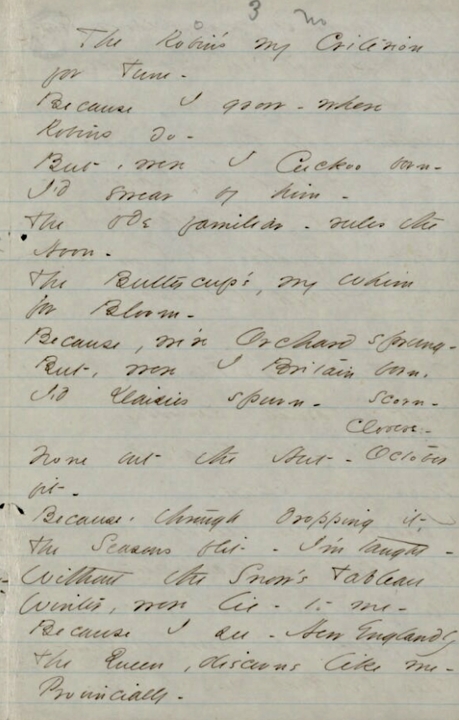 3 no
The Robin's my Criterion
for Tune -
Because I grow - where
Robins do -
But, were I Cuckoo born -
I'd swear by him -
The ode familiar - rules the
Noon -
The Buttercup's, my whim
for Bloom -
Because, we're Orchard sprung -
But, were I Britain born,
I'd Daisies spurn - scorn -
Clovers -
None but the Nut - October
fit -
Because, through dropping it,
The Seasons flit - I'm taught -
Without the Snow's Tableau
Winter, were lie - to me -
Because I see - New Englandly -
The Queen, discerns like me -
Provincially -